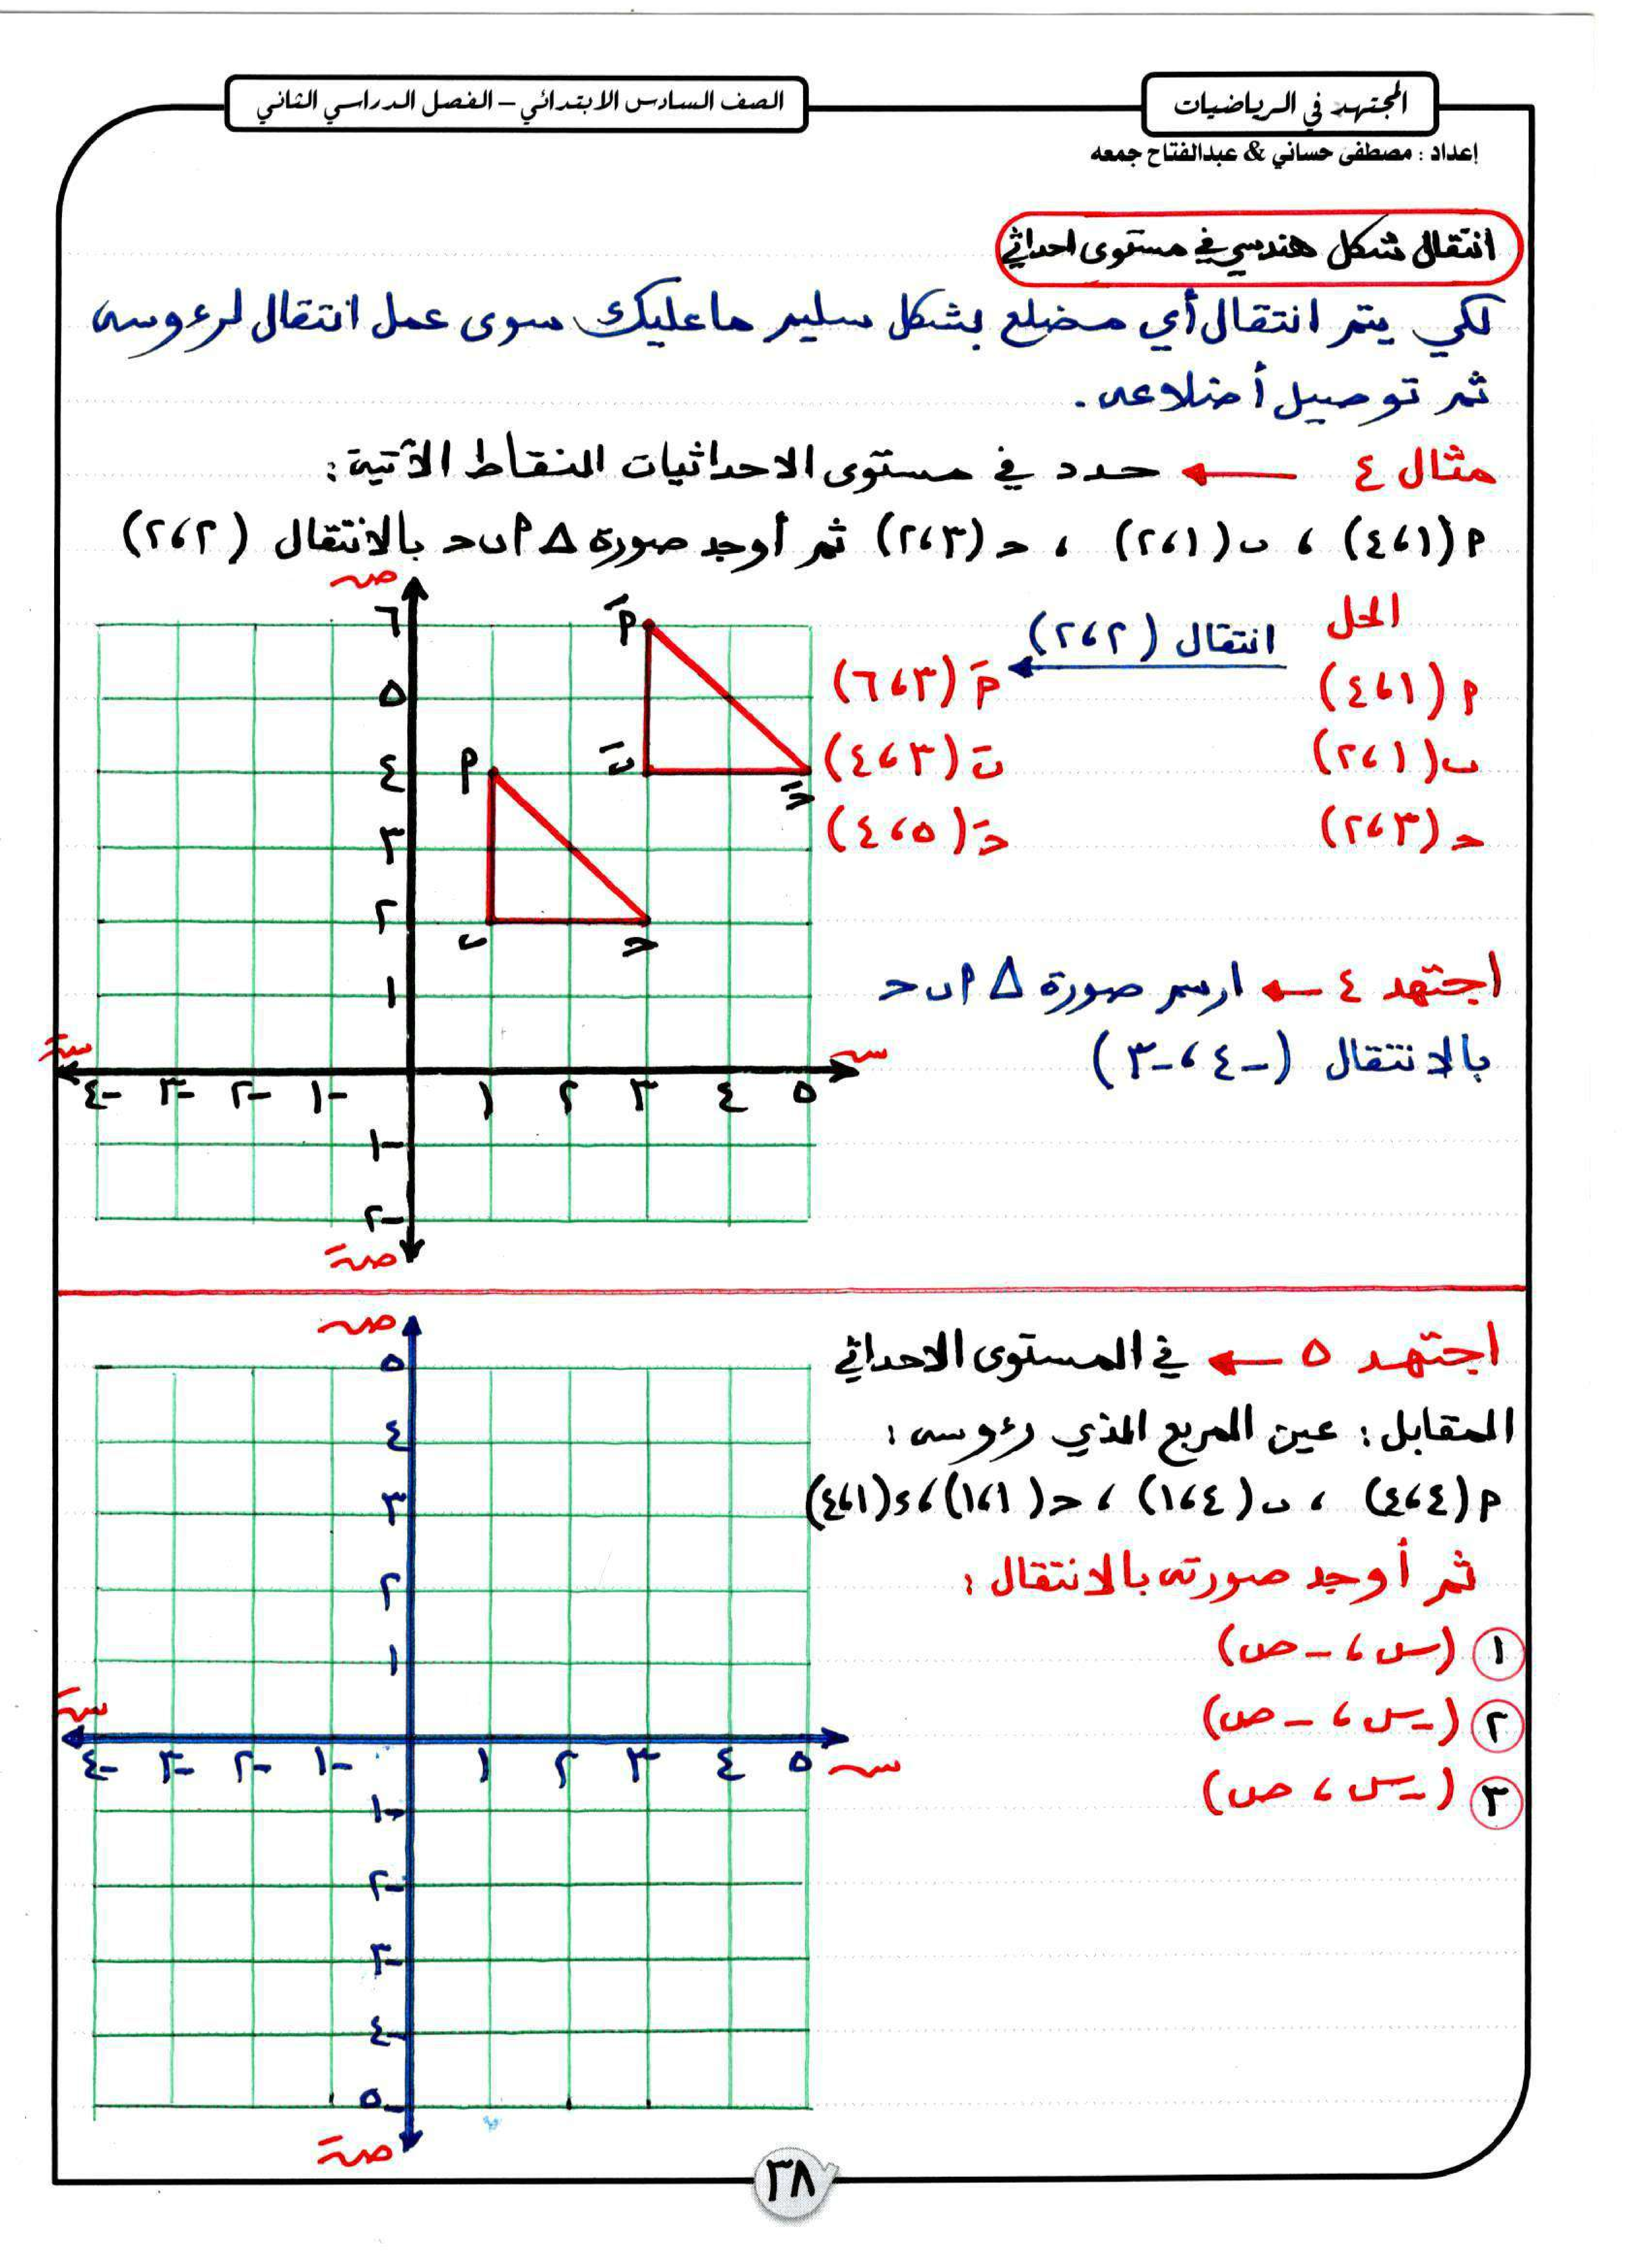 المجتهد في الرياضيات
الصف السادس الابتدائي – الفصل الدراسي الثاني
إعداد : مصطفى حساني & عبدالفتاح جمعه
انتقال شكل هندسي في مستوى احداثي
لكي يتم انتقال أي مضلع بشكل سليم ما عليك سوى عمل انتقال لرءوسه
ثم توصيل أضلاعه .
مثال ٤ ← حدد في مستوى الاحداثيات النقاط الآتية :
م (١ ، ٤) ، ب (١ ، ٢) ، حـ (٣ ، ٢) ثم أوجد صورة Δ م ب حـ بالانتقال (٢ ، ٢)
الحل
انتقال (٢ ، ٢)
م (١ ، ٤) مَ (٣ ، ٦)
ب (١ ، ٢) بَ (٣ ، ٤)
حـ (٣ ، ٢) حـَ (٥ ، ٤)
صـ
٦
٥
٤
٣
٢
١
سـَ
-٤ -٣ -٢ -١ ١ ٢ ٣ ٤ ٥
سـ
-١
-٢
صـَ
مَ
بَ
حـَ
م
ب
حـ
اجتهد ٤ ← ارسم صورة Δ م ب حـ
بالانتقال (-٤ ، -٣)
اجتهد ٥ ← في المستوى الاحداثي
المقابل : عين المربع الذي رءوسه :
م (٤ ، ٤) ، ب (٤ ، ١) ، حـ (١ ، ١) ، ء (١ ، ٤)
ثم أوجد صورته بالانتقال :
١ (س ، - ص)
٢ (- س ، - ص)
٣ (- س ، ص)
صـ
٥
٤
٣
٢
١
سـَ
-٤ -٣ -٢ -١ ١ ٢ ٣ ٤ ٥
سـ
-١
-٢
-٣
-٤
-٥
صـَ
٣٨